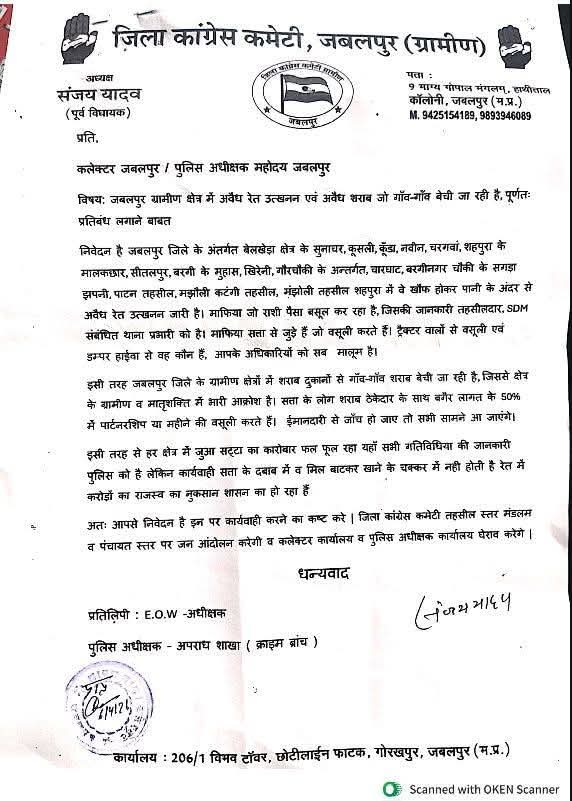 जिला कांग्रेस कमेटी, जबलपुर (ग्रामीण)
अध्यक्ष
संजय यादव
(पूर्व विधायक)
जिला कांग्रेस कमेटी ग्रामीण
जबलपुर
पता :
9 भाग्य गोपाल मंगलम्, हाथीताल
कॉलोनी, जबलपुर (म.प्र.)
M. 9425154189, 9893946089
प्रति,
कलेक्टर जबलपुर / पुलिस अधीक्षक महोदय जबलपुर
विषय: जबलपुर ग्रामीण क्षेत्र में अवैध रेत उत्खनन एवं अवैध शराब जो गाँव-गाँव बेची जा रही है, पूर्णतः
प्रतिबंध लगाने बाबत
निवेदन है जबलपुर जिले के अंतर्गत बेलखेड़ा क्षेत्र के सुनाचर, कूसली, कूंडा, नवीन, चरगवां, शहपुरा के
मालकछार, सीतलपुर, बरगी के मुहास, खिरेनी, गौरचौकी के अन्तर्गत, चारघाट, बरगीनगर चौकी के सगड़ा
झपनी, पाटन तहसील, मझौली कटंगी तहसील, मंझोली तहसील शहपुरा में वे खौफ होकर पानी के अंदर से
अवैध रेत उत्खनन जारी है। माफिया जो राशी पैसा बसूल कर रहा है, जिसकी जानकारी तहसीलदार, SDM
संबंधित थाना प्रभारी को है। माफिया सत्ता से जुड़े हैं जो वसूली करते हैं। ट्रैक्टर वालों से वसूली एवं
डम्पर हाईवा से वह कौन हैं, आपके अधिकारियों को सब मालूम है।
इसी तरह जबलपुर जिले के ग्रामीण क्षेत्रों में शराब दुकानों से गाँव-गाँव शराब बेची जा रही है, जिससे क्षेत्र
के ग्रामीण व मातृशक्ति में भारी आक्रोश है। सत्ता के लोग शराब ठेकेदार के साथ बगैर लागत के 50%
में पार्टनरशिप या महीने की वसूली करते हैं। ईमानदारी से जाँच हो जाए तो सभी सामने आ जाएंगे।
इसी तरह से हर क्षेत्र में जुआ सट्टा का कारोबार फल फूल रहा यहाँ सभी गतिविधिया की जानकारी
पुलिस को है लेकिन कार्यवाही सत्ता के दबाब में व मिल बाटकर खाने के चक्कर में नही होती है रेत में
करोड़ों का राजस्व का नुकसान शासन का हो रहा हैं
अतः आपसे निवेदन है इन पर कार्यवाही करने का कष्ट करे | जिला कांग्रेस कमेटी तहसील स्तर मंडलम
व पंचायत स्तर पर जन आंदोलन करेगी व कलेक्टर कार्यालय व पुलिस अधीक्षक कार्यालय घेराव करेगे |
धन्यवाद
संजय यादव
प्रतिलिपी : E.O.W -अधीक्षक
पुलिस अधीक्षक - अपराध शाखा ( क्राइम ब्रांच )
कार्यालय : 206/1 विभव टॉवर, छोटीलाईन फाटक, गोरखपुर, जबलपुर (म.प्र.)
Scanned with OKEN Scanner